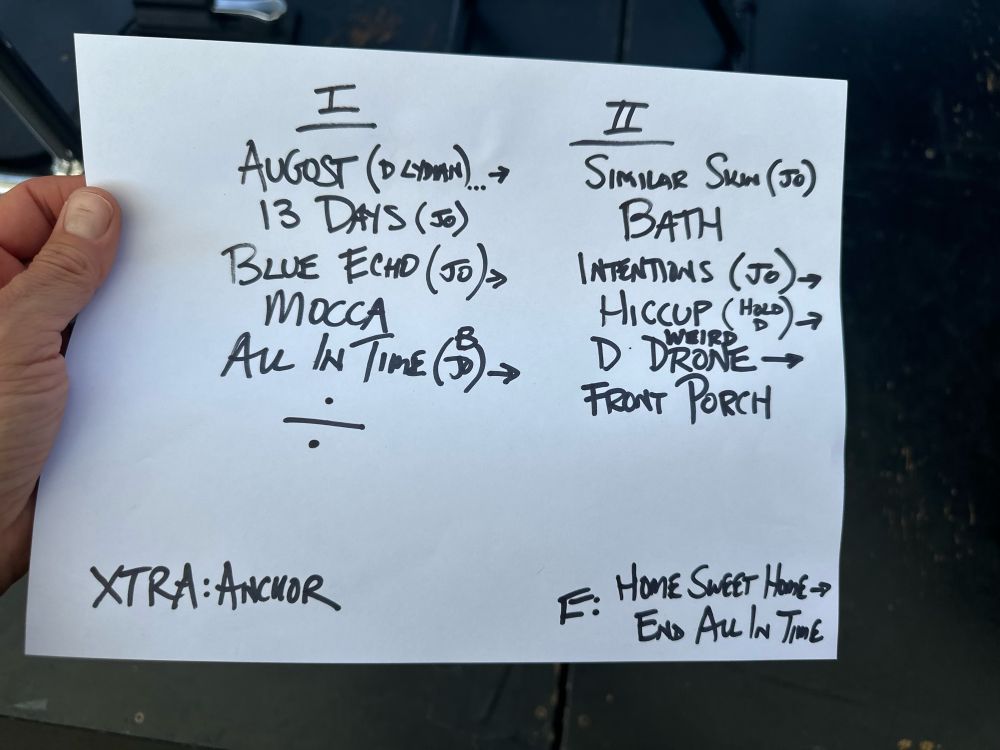 I
AUGUST (D LYDIAN)...→
13 DAYS (JO)
BLUE ECHO (JO)→
MOCCA
ALL IN TIME (B JO)→
÷
XTRA: ANCHOR
II
SIMILAR SKIN (JO)
BATH
INTENTIONS (JO)→
HICCUP (HOLD D)→
D WEIRD DRONE →
FRONT PORCH
E: HOME SWEET HOME→
END ALL IN TIME